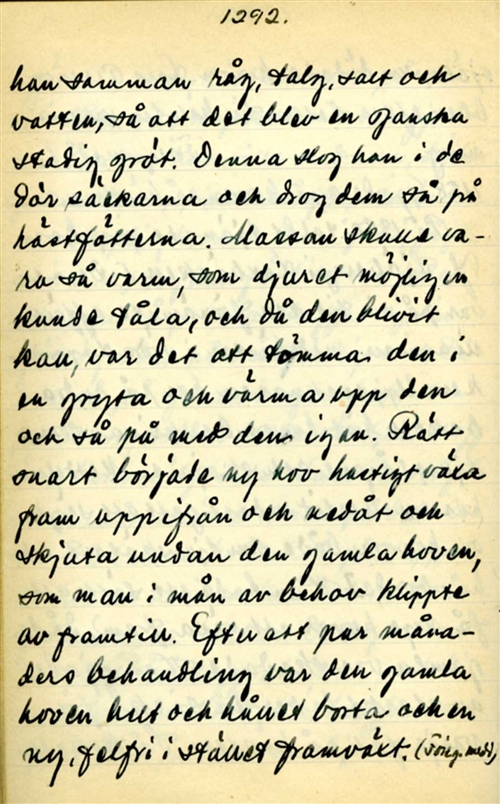 1292.
han samman råg, talg, salt och
vatten, så att det blev en ganska
stadig gröt. Denna slog han i de
där säckarna och drog dem så på
hästfötterna. Massan skulle va-
ra så varm, som djuret möjligen
kunde tåla, och då den blivit
kall, var det att tömma den i
en gryta och värma upp den
och så på med den igen. Rätt
snart började ny hov hastigt växa
fram uppifrån och nedåt och
skjuta undan den gamla hoven,
som man i mån av behov klippte
av framtill. Efter ett par måna-
ders behandling var den gamla
hoven helt och hållet borta och en
ny, felfri i stället framväxt. (Föreg. medd.)